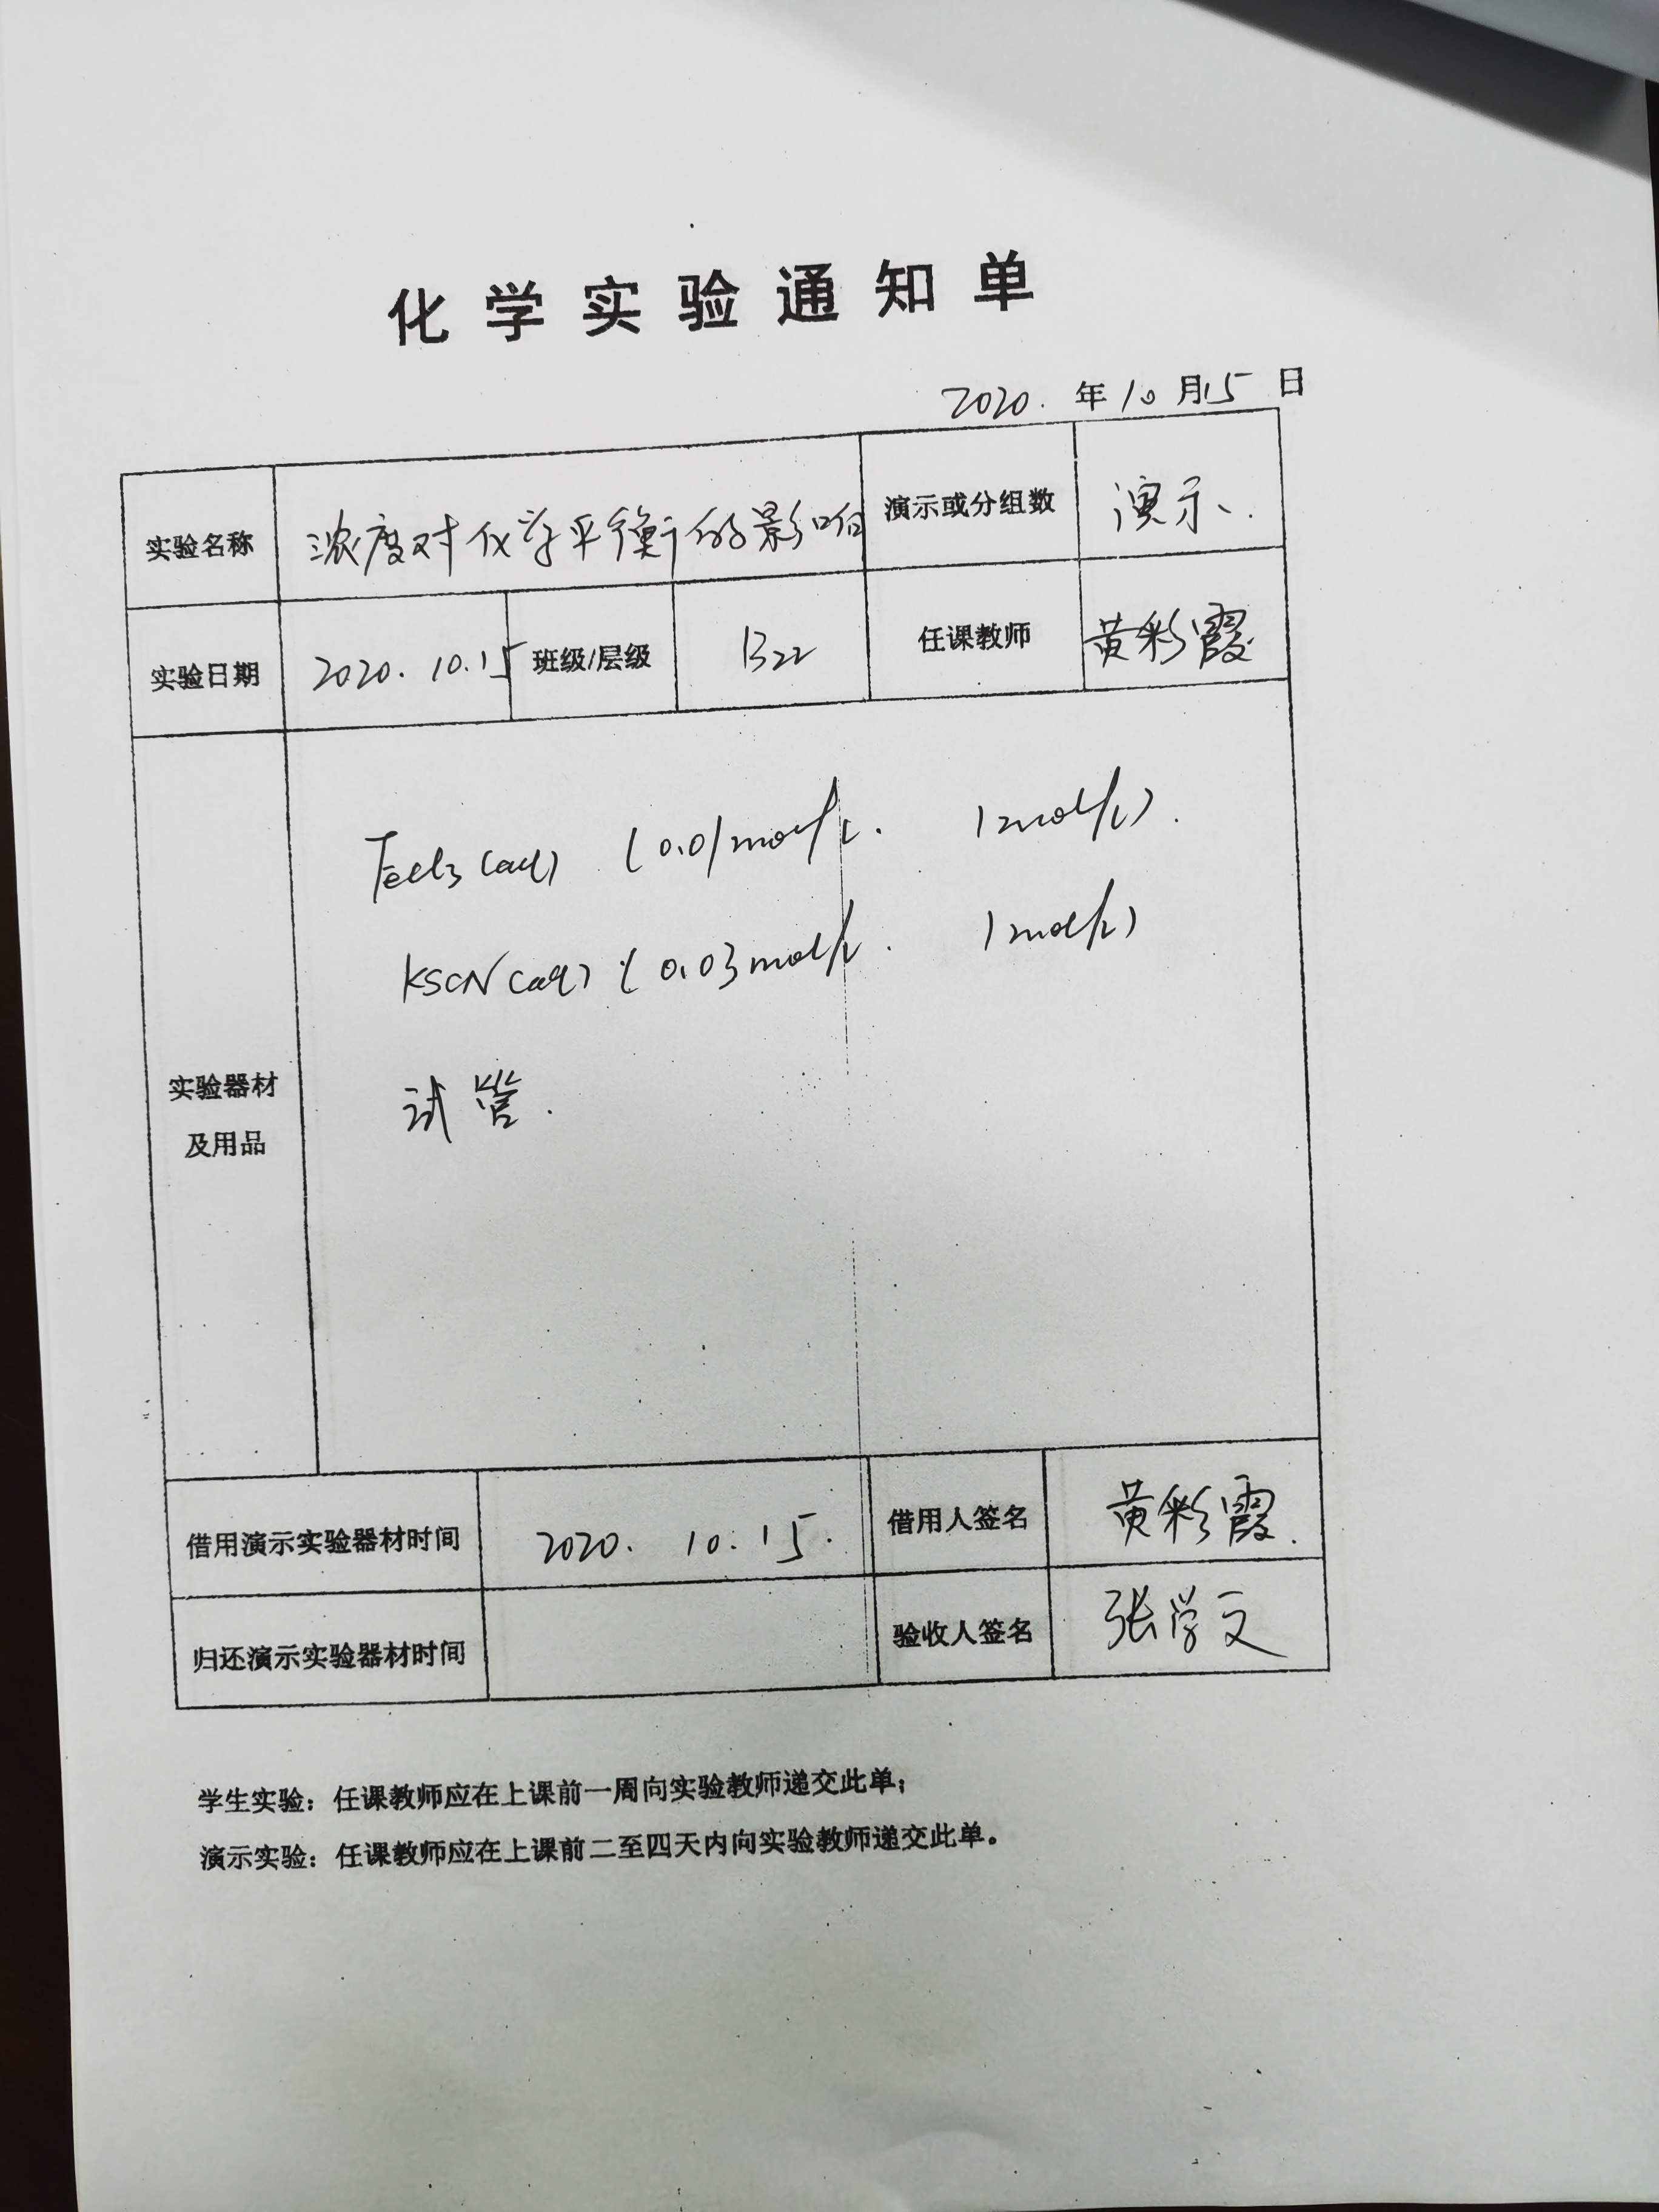 化学实验通知单
2020. 年10月15日
实验名称 浓度对化学平衡的影响 演示或分组数 演示、
实验日期 2020.10.15 班级/层级 B22 任课教师 黄彩霞
FeCl3(aq) (0.01mol/L. 1mol/L).
KSCN(aq) (0.03mol/L. 1mol/L)
试管.
实验器材
及用品
借用演示实验器材时间 2020. 10. 15. 借用人签名 黄彩霞.
归还演示实验器材时间 验收人签名 张学文
学生实验：任课教师应在上课前一周向实验教师递交此单；
演示实验：任课教师应在上课前二至四天内向实验教师递交此单。